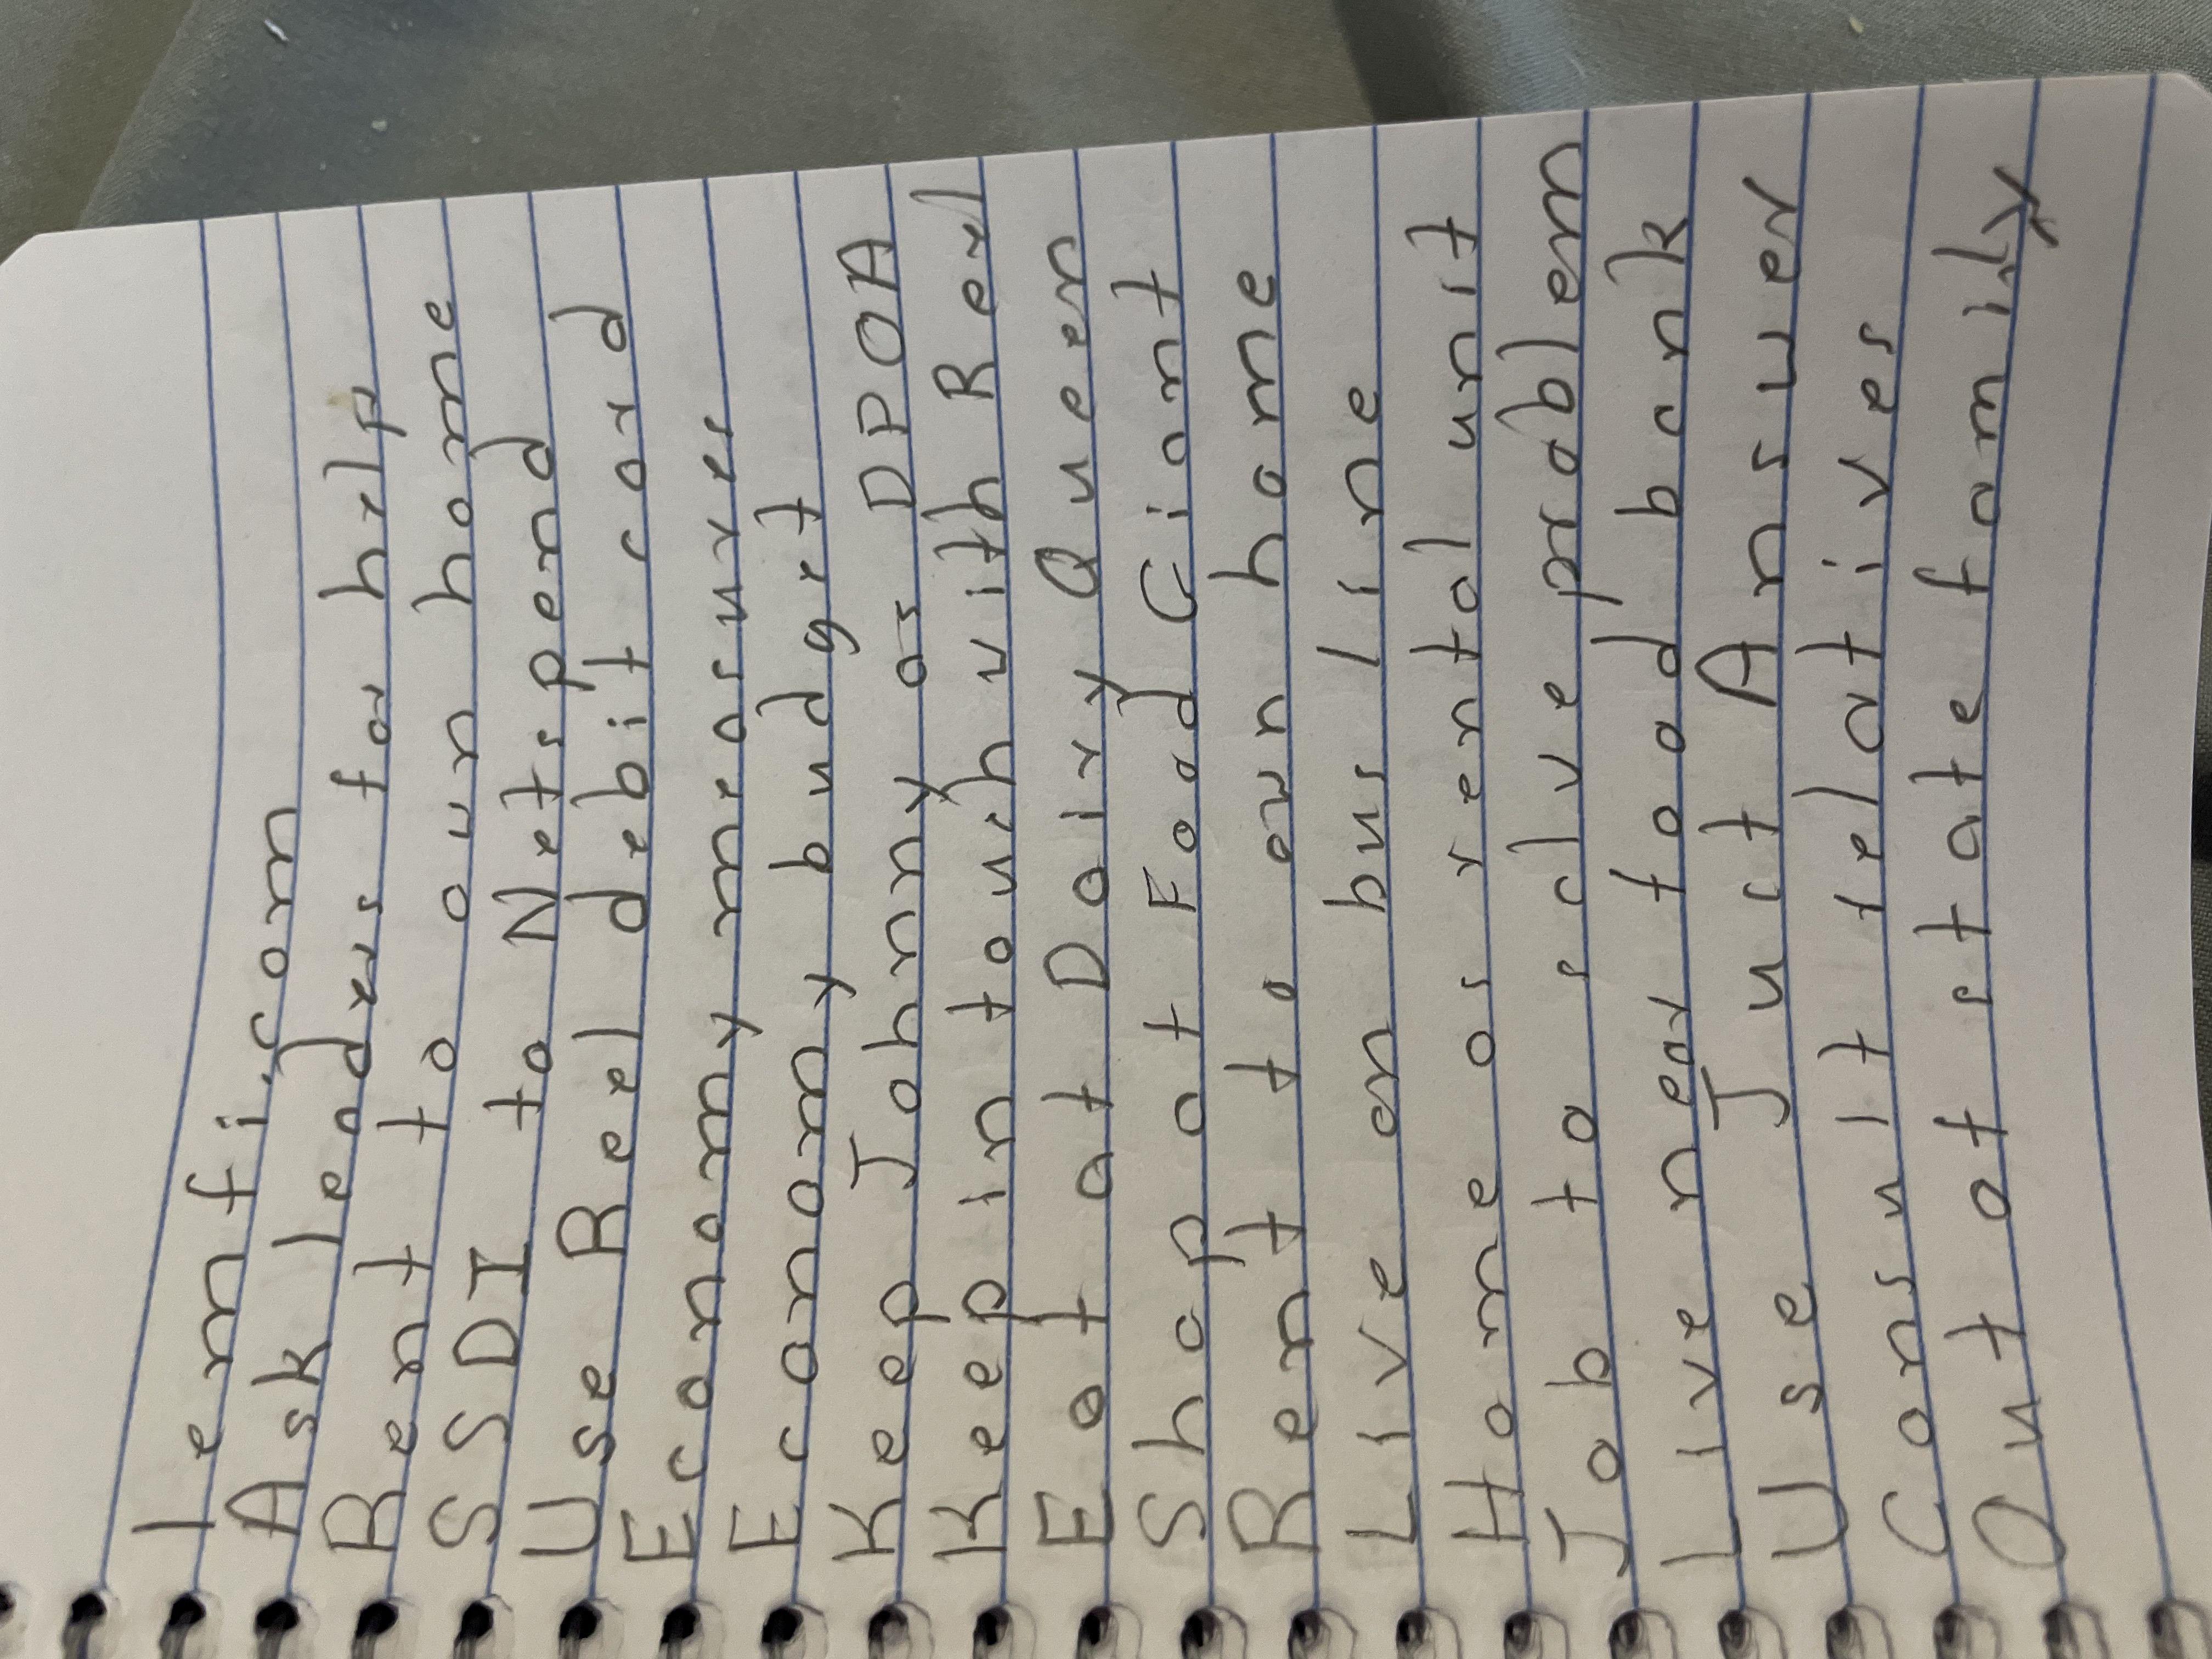 lemfi.com
Ask leaders for help
Rent to own home
SSDI to Netspend
Use Rel debit card
Economy measures
Economy budget
Keep Johnny as DPOA
Keep in touch with Rel
Eat at Dairy Queen
Shop at Food Giant
Rent to own home
Live on bus line
Home as rental unit
Job to solve problem
Live near food bank
Use Just Answer
Consult relatives
Out of state family